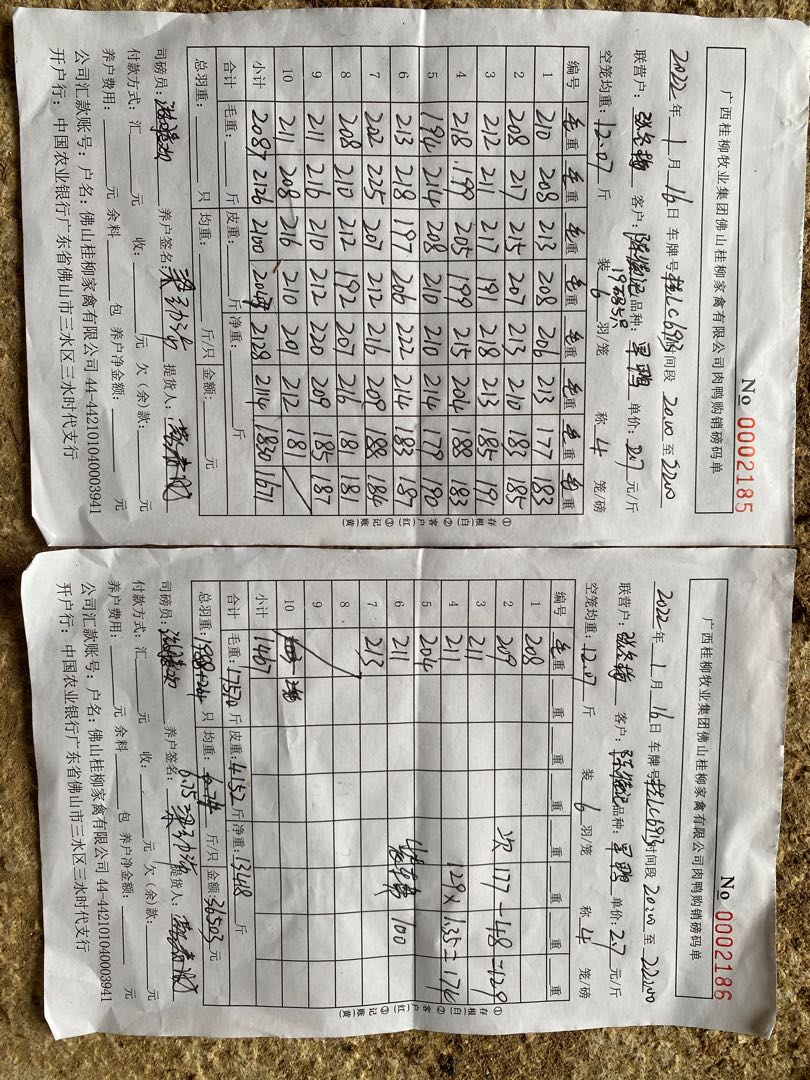 广西桂柳牧业集团佛山桂柳家禽有限公司肉鸭购销磅码单
No 0002185
2022年1月16日 车牌号 时间段 20:00 至 22:00
联营户: 客户: 品种: 单价: 2.7 元/斤
空笼均重: 12.07 斤 装 6 羽/笼 称 4 笼/磅
编号 毛重 毛重 毛重 毛重 毛重 毛重 毛重 毛重
1 210 208 213 208 206 213 177 183
2 208 217 215 207 213 210 183 185
3 212 211 217 191 218 213 185 191
4 218 199 205 199 215 204 188 183
5 194 214 208 210 210 214 179 190
6 213 218 197 206 222 214 183 187
7 202 225 207 212 216 209 188 184
8 208 210 212 192 207 216 181 181
9 211 216 210 212 220 209 185 187
10 211 208 216 210 201 212 181
小计 2087 2126 2100 2047 2128 2114 1830 1671
合计 毛重: 斤 皮重: 斤 净重: 斤
总羽重: 只 均重: 斤/只 金额: 元
①存根(白) ②客户(红) ③记账(黄)
司磅员: 养户签名: 提货人:
付款方式: 汇 元 收: 元 欠(余)款: 元
养户费用: 元 余料 包 养户净金额: 元
公司汇款账号: 户名: 佛山桂柳家禽有限公司 44-442101040003941
开户行: 中国农业银行广东省佛山市三水区三水时代支行
广西桂柳牧业集团佛山桂柳家禽有限公司肉鸭购销磅码单
No 0002186
2022年1月16日 车牌号 时间段 20:00 至 22:00
联营户: 客户: 品种: 单价: 2.7 元/斤
空笼均重: 12.07 斤 装 6 羽/笼 称 4 笼/磅
编号 毛重 重 重 重 重 重 重 重
1 208
2 209 次 177-48=129
3 211
4 211 129×1.35=174
5 204
6 211 100
7 213
8
9
10
小计 1467
合计 毛重: 17570 斤 皮重: 4152 斤 净重: 13418 斤
总羽重: 只 均重: 6.75 斤/只 金额: 36503 元
①存根(白) ②客户(红) ③记账(黄)
司磅员: 养户签名: 提货人:
付款方式: 汇 元 收: 元 欠(余)款: 元
养户费用: 元 余料 包 养户净金额: 元
公司汇款账号: 户名: 佛山桂柳家禽有限公司 44-442101040003941
开户行: 中国农业银行广东省佛山市三水区三水时代支行